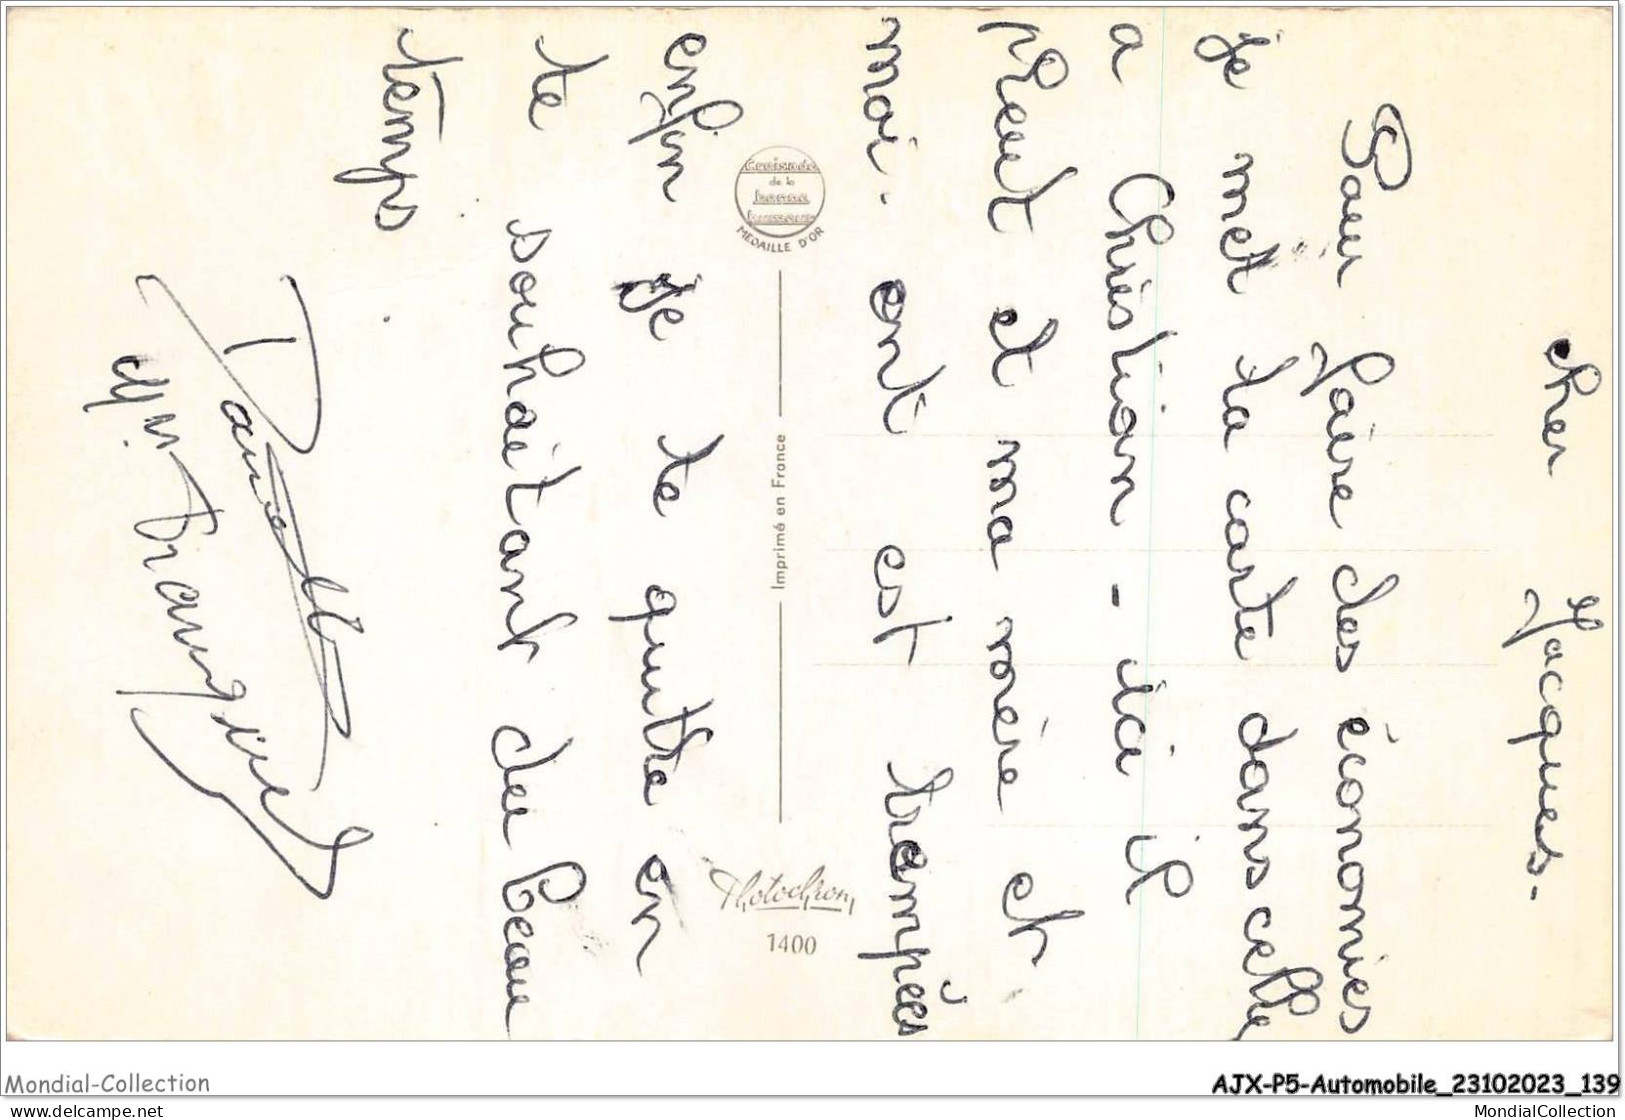 cher Jacques.
Pour faire des économies
je met ta carte dans celle
a Christian - ici il
pleut et ma mère et
moi. ont est trampées
enfin je te quitte en
te souhaitant du beau
temps
Croisade
de la
bonne
humeur
MEDAILLE D'OR
Imprimé en France
Photochrom
1400
Mondial-Collection
AJX-P5-Automobile_23102023_139
delcampe.net
MondialCollection